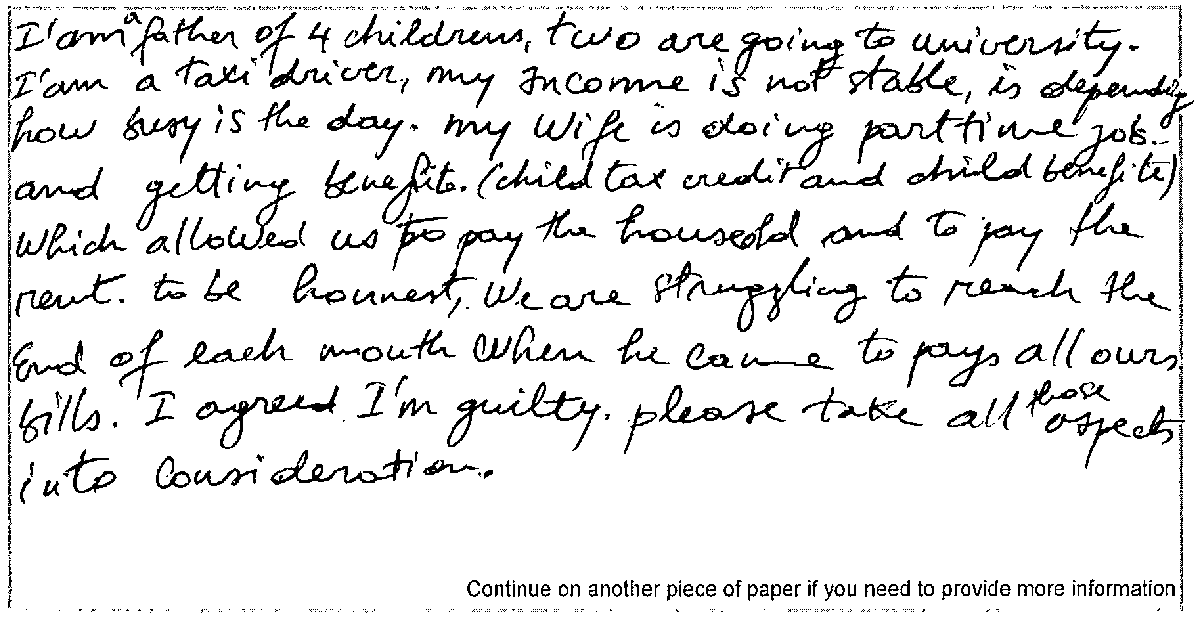 I'am a father of 4 childrens, two are going to university.
I'am a taxi driver, my income is not stable, is depending
how busy is the day. my wife is doing part time job.
and getting benefits. (child tax credit and child benefits)
which allowed us to pay the housedld and to pay the
rent. to be hounnest, We are struggling to reach the
End of each mouth when he came to pays all ours
bills. I agreed I'm guilty. please take all those aspects
into consideration.
Continue on another piece of paper if you need to provide more information